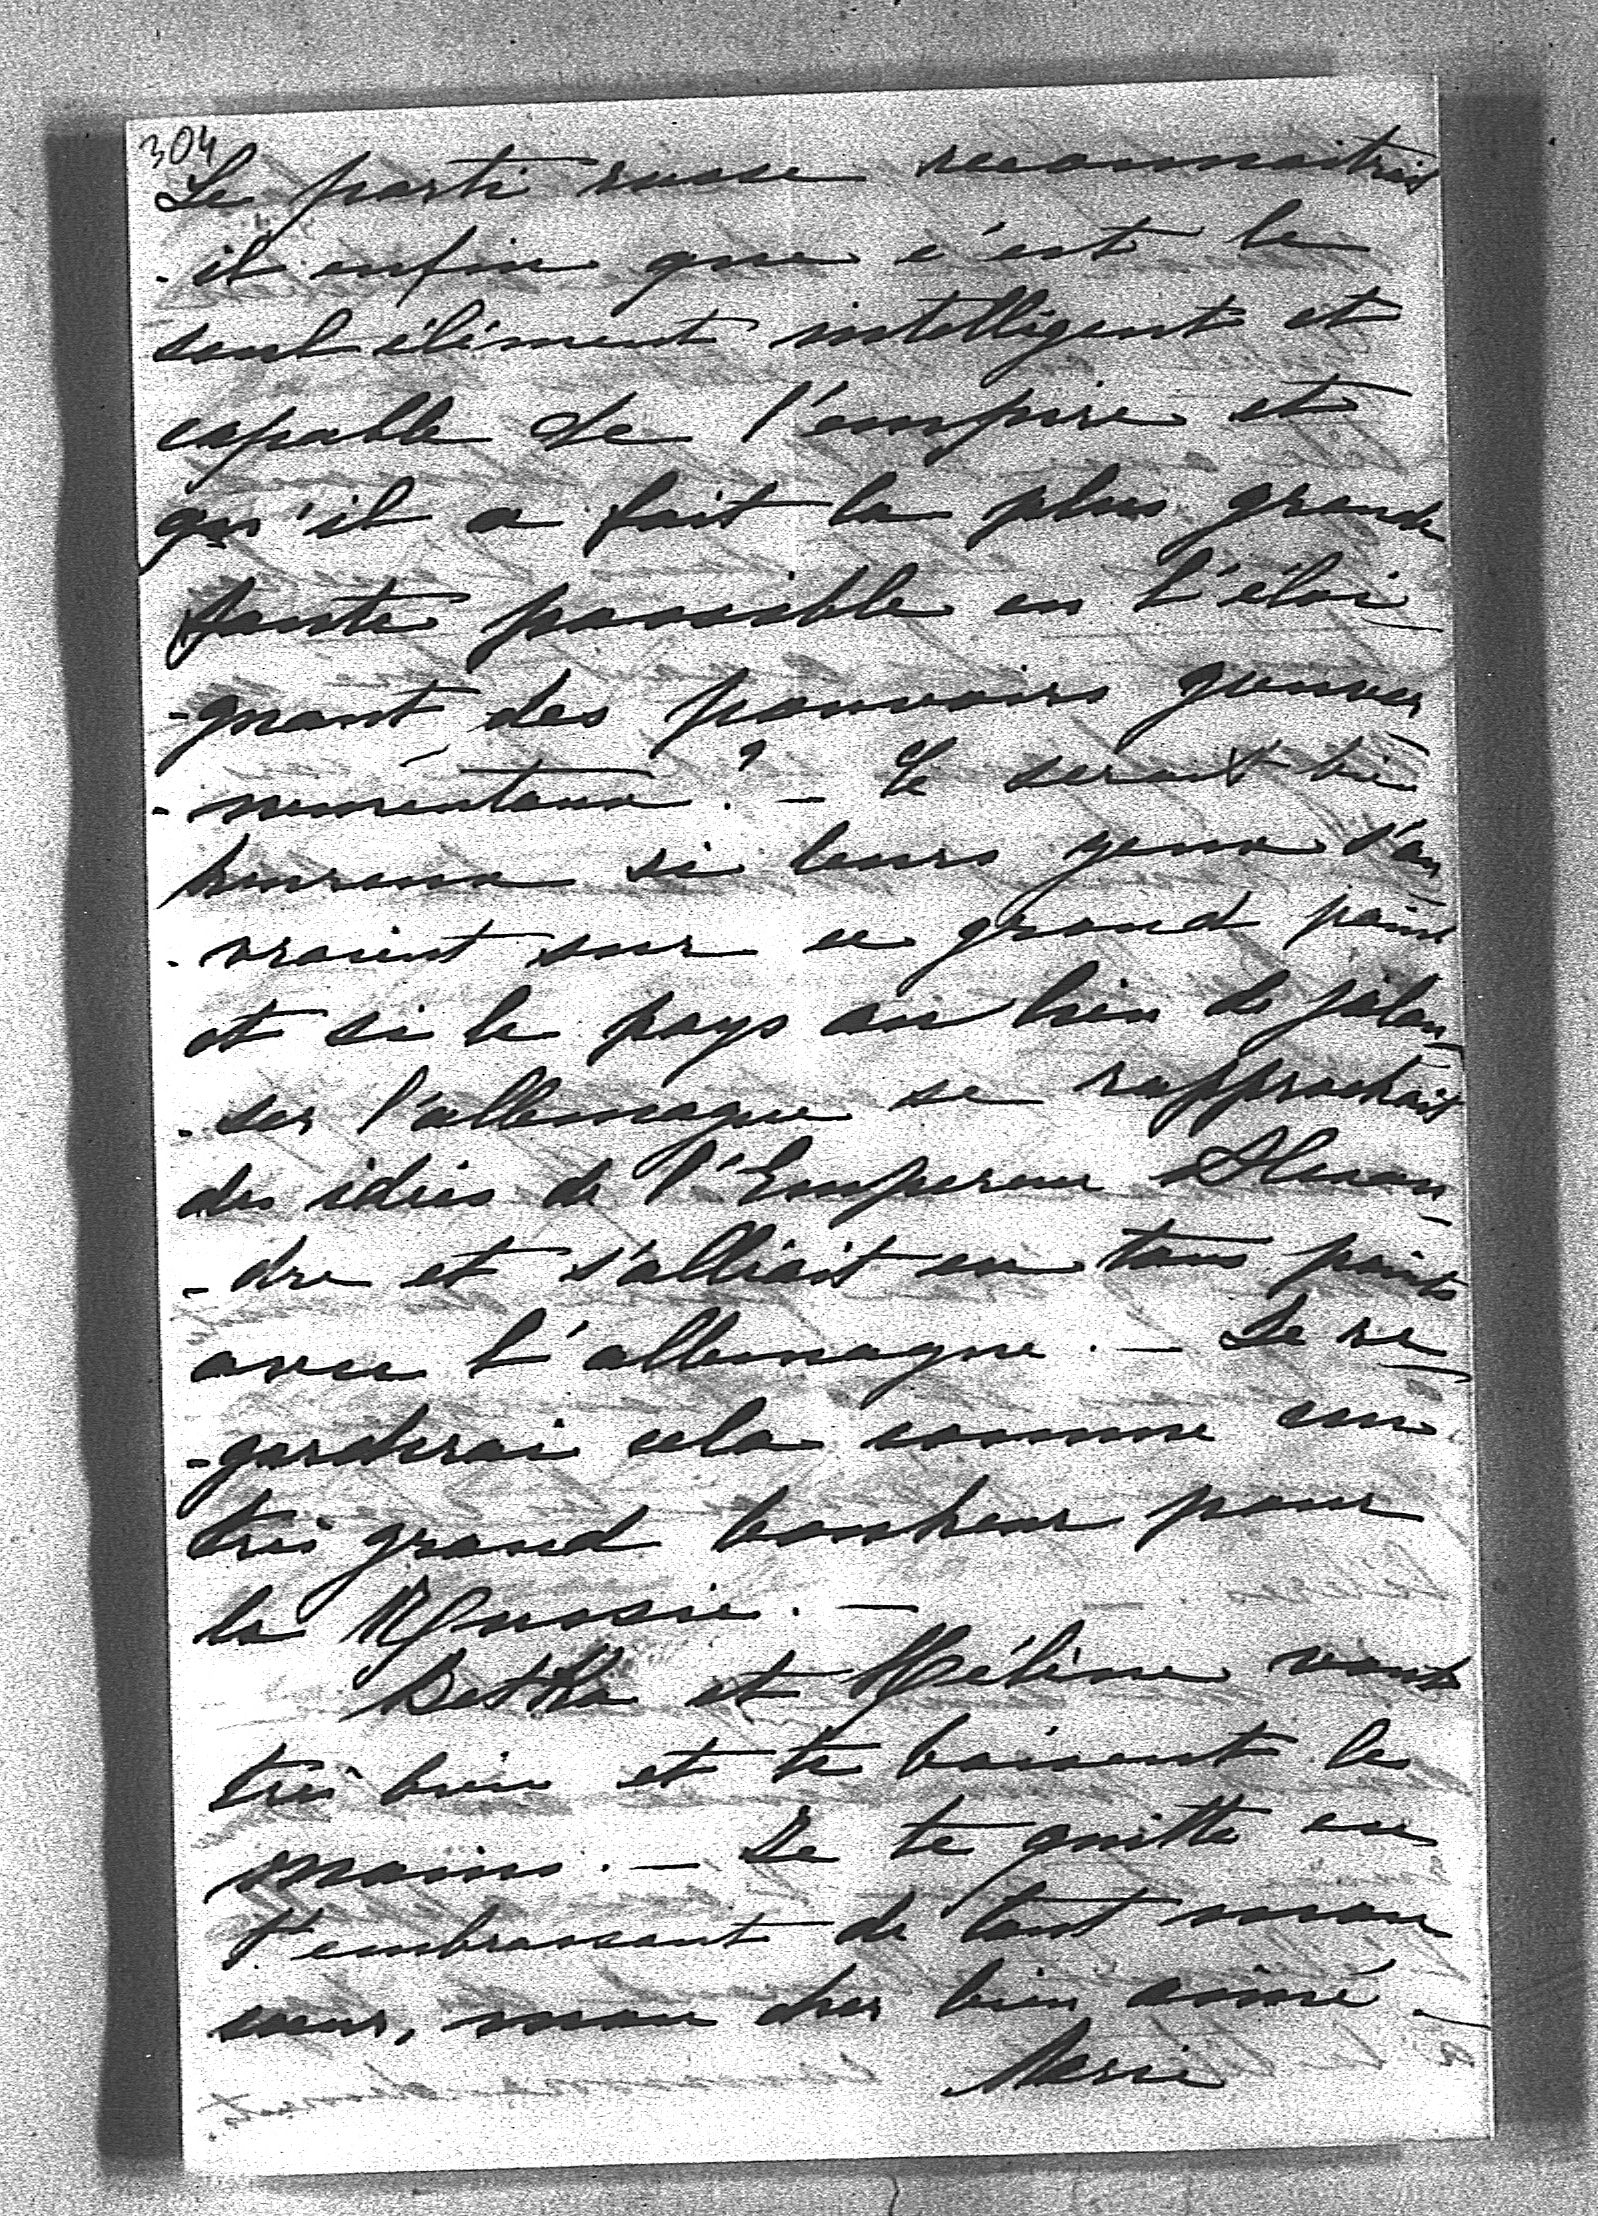 304
Le parti russe reconnaitrait
-il enfin que c'est le
seul élément intelligent et
capable de l'empire et
qu'il a fait la plus grande
faute possible en l'éloi
-gnant des pouvoirs gouver
-nementaux ? — Ce serait bien
heureux si leurs yeux s'ou
-vraient sur ce grand point
et si le pays au lieu de jalou
-ser l'allemagne se rapprochait
des idées de l'Empereur Alexan
-dre et s'alliait en tous points
avec l'allemagne. — Je re
-garderai cela comme un
très grand bonheur pour
la Russie. —
Betka et Hélène vont
très bien et te baisent les
mains. — Je te quitte en
t'embrassant de tout mon
cœur, mon cher bien aimé. —
Marie